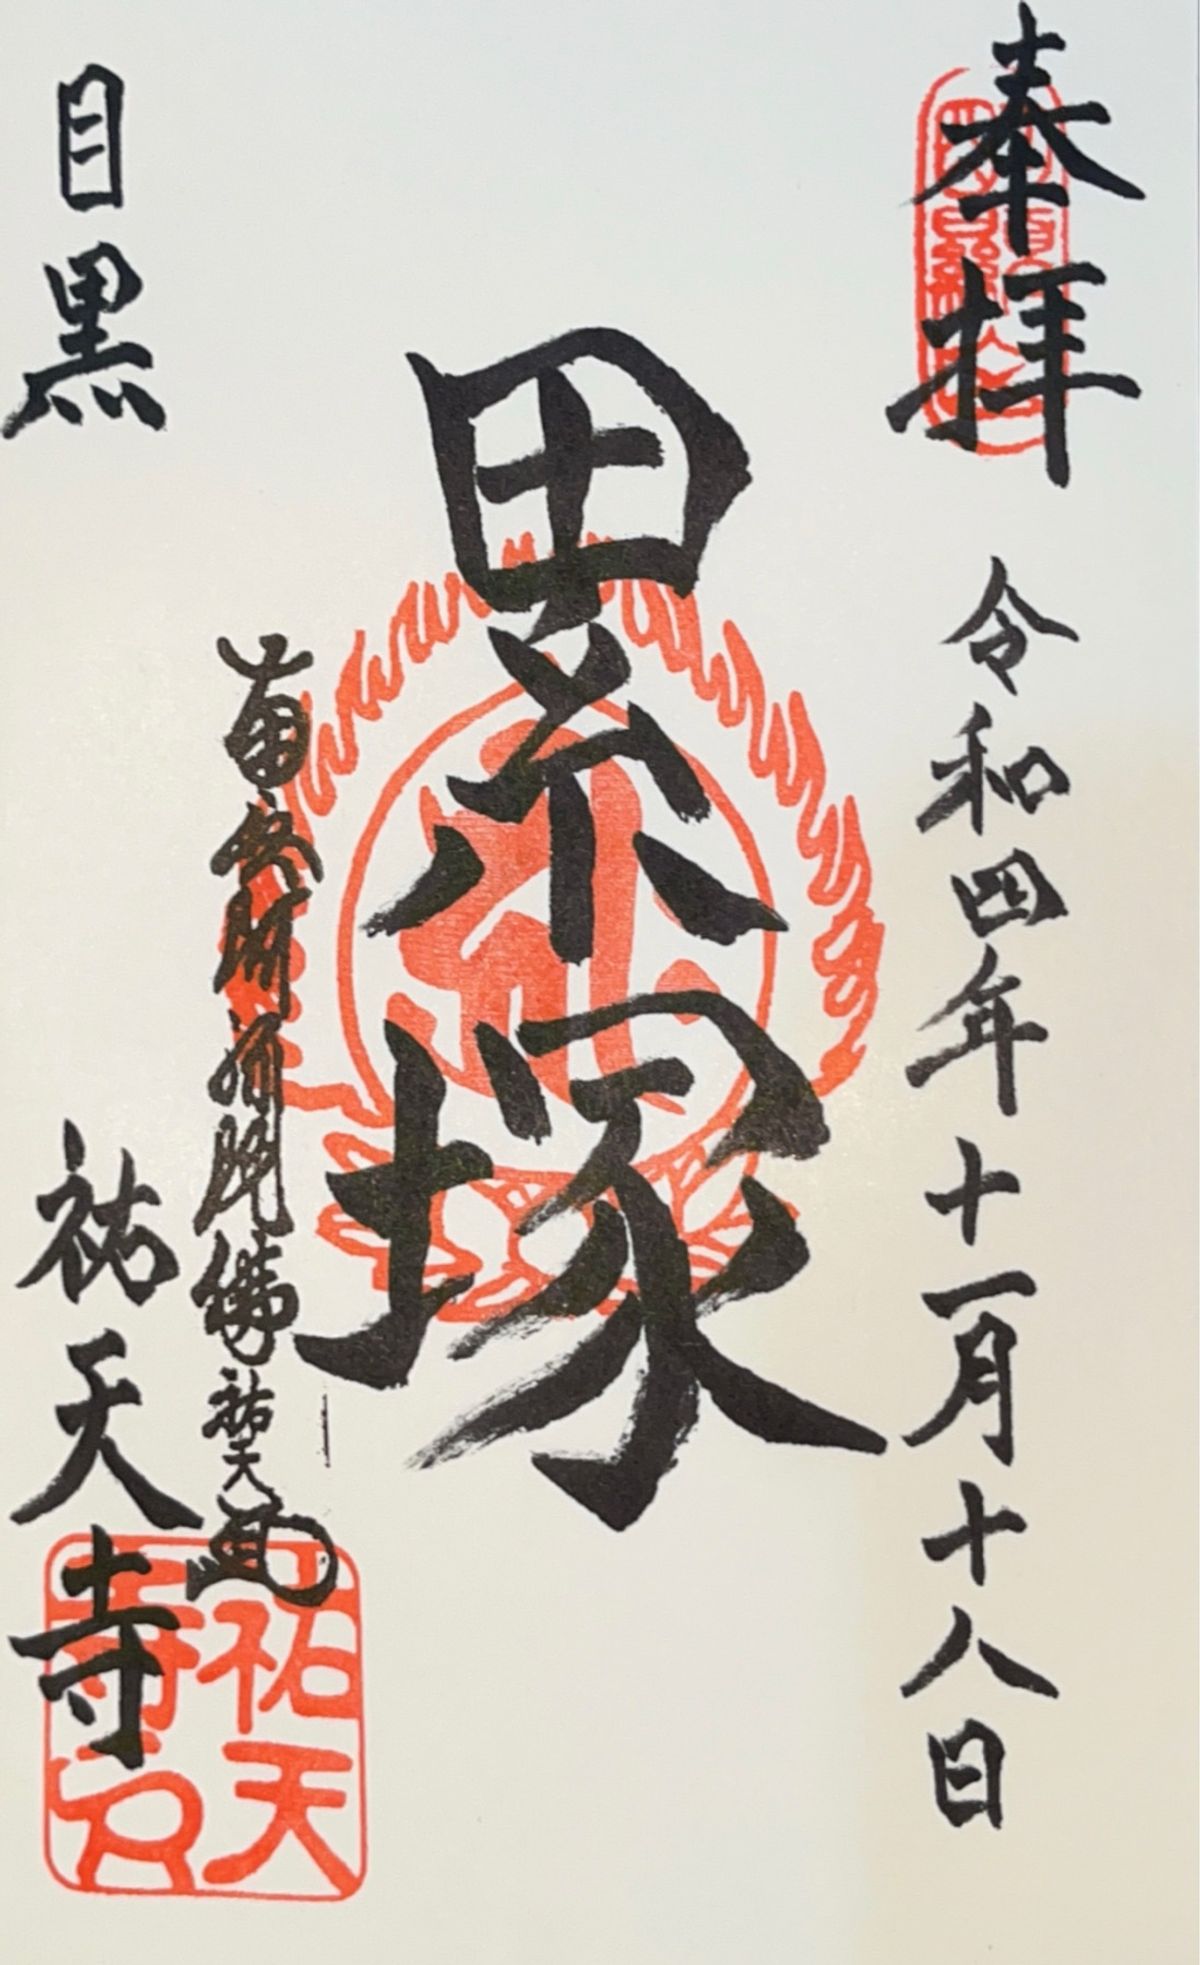 奉拝
令和四年十一月十八日
累塚
南無阿弥陀佛
祐天
目黒
祐天寺
祐天
寺